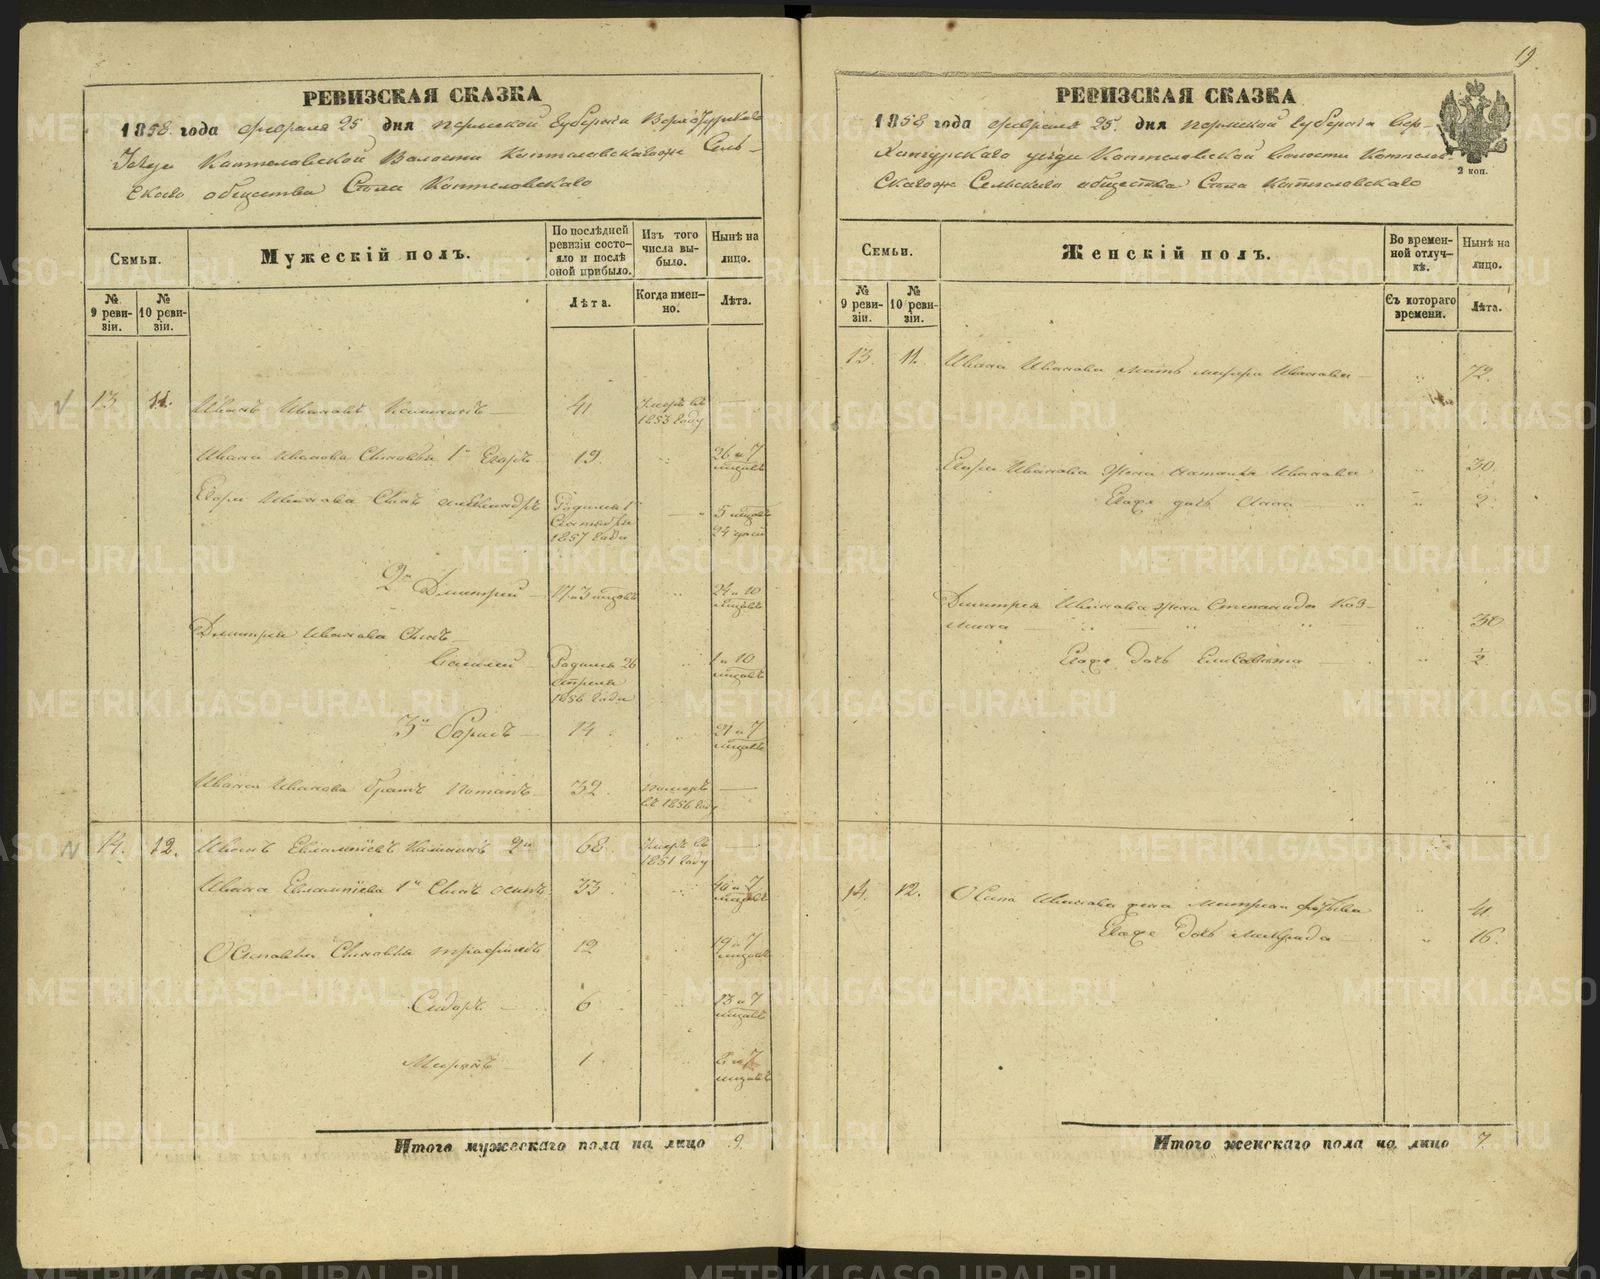 19
РЕВИЗСКАЯ СКАЗКА
1858 года февраля 25 дня Пермской Губернии Верхотурскаго
Уезда Коптеловской Волости Коптеловскагоже Сель-
скаго общества Села Коптеловскаго
Семьи.
Мужескій полъ.
По послѣдней ревизіи состояло и послѣ оной прибыло.
Изъ того числа выбыло.
Нынѣ на лицо.
№ 9 ревизіи.
№ 10 ревизіи.
Лѣта.
Когда именно.
Лѣта.
13 11. Иванъ Ивановъ 41 Умеръ въ 1853 году
Ивана Иванова Сыновья 1й Егоръ 19. 26 и 7 месяцовъ
Егора Иванова Сынъ Александръ Родился 1го Сентября 1857 года 5 месяцовъ 24 дней
2й Дмитрій 17 и 3 месяцовъ 24 и 10 месяцовъ
Дмитрія Иванова Сынъ
Василій Родился 26 Апреля 1856 года 1 и 10 месяцовъ
3й Борисъ 14 21 и 7 месяцовъ
Ивана Иванова братъ Потапъ 32. померъ въ 1856 году
14. 12. Иванъ Евлампіевъ 2й 68. Умеръ въ 1851 году
Ивана Евлампіева 1й Сынъ Осипъ 33 40 и 7 месяцовъ
Осиповы Сыновья Трофимъ 12 19 и 7 месяцовъ
Сидоръ 6 13 и 7 месяцовъ
Миронъ 1 8 и 7 месяцовъ
Итого мужескаго пола на лицо 9.
РЕВИЗСКАЯ СКАЗКА
1858 года февраля 25. дня Пермской Губерніи Вер-
хотурскаго уезда Коптеловской волости Коптелов-
скагоже Сельскаго общества Села Коптеловскаго
2 коп.
Семьи.
Женскій полъ.
Во временной отлучкѣ.
Нынѣ на лицо.
№ 9 ревизіи.
№ 10 ревизіи.
Съ котораго времени.
Лѣта.
13. 11. Ивана Иванова мать Марфа Иванова 72.
Егора Иванова жена Наталья Иванова 30.
Егоже дочь Анна 2.
Дмитрія Иванова жена Степанида Коз-
мина 30
Егоже дочь Елисавета 1/2
14. 12. Осипа Иванова жена 41.
Егоже дочь 16.
Итого женскаго пола на лицо 7.
METRIKI.GASO-URAL.RU